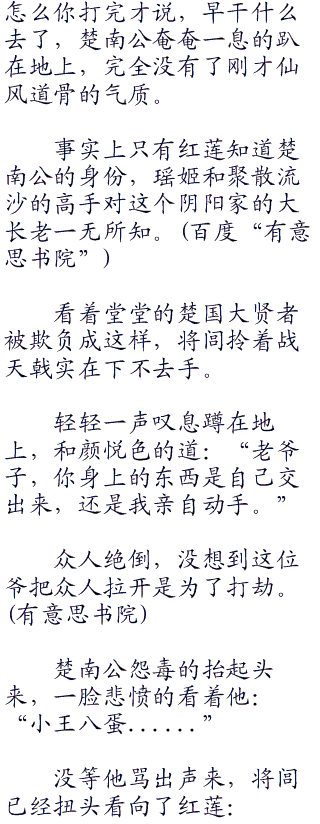 怎么你打完才说，早干什么
去了，楚南公奄奄一息的趴
在地上，完全没有了刚才仙
风道骨的气质。
事实上只有红莲知道楚
南公的身份，瑶姬和聚散流
沙的高手对这个阴阳家的大
长老一无所知。(百度“有意
思书院”)
看着堂堂的楚国大贤者
被欺负成这样，将闾拎着战
天戟实在下不去手。
轻轻一声叹息蹲在地
上，和颜悦色的道：“老爷
子，你身上的东西是自己交
出来，还是我亲自动手。”
众人绝倒，没想到这位
爷把众人拉开是为了打劫。
(有意思书院)
楚南公怨毒的抬起头
来，一脸悲愤的看着他：
“小王八蛋......”
没等他骂出声来，将闾
已经扭头看向了红莲：